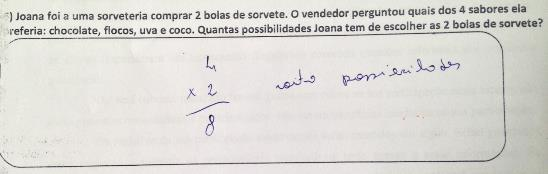 ) Joana foi a uma sorveteria comprar 2 bolas de sorvete. O vendedor perguntou quais dos 4 sabores ela
referia: chocolate, flocos, uva e coco. Quantas possibilidades Joana tem de escolher as 2 bolas de sorvete?
4
x 2
8